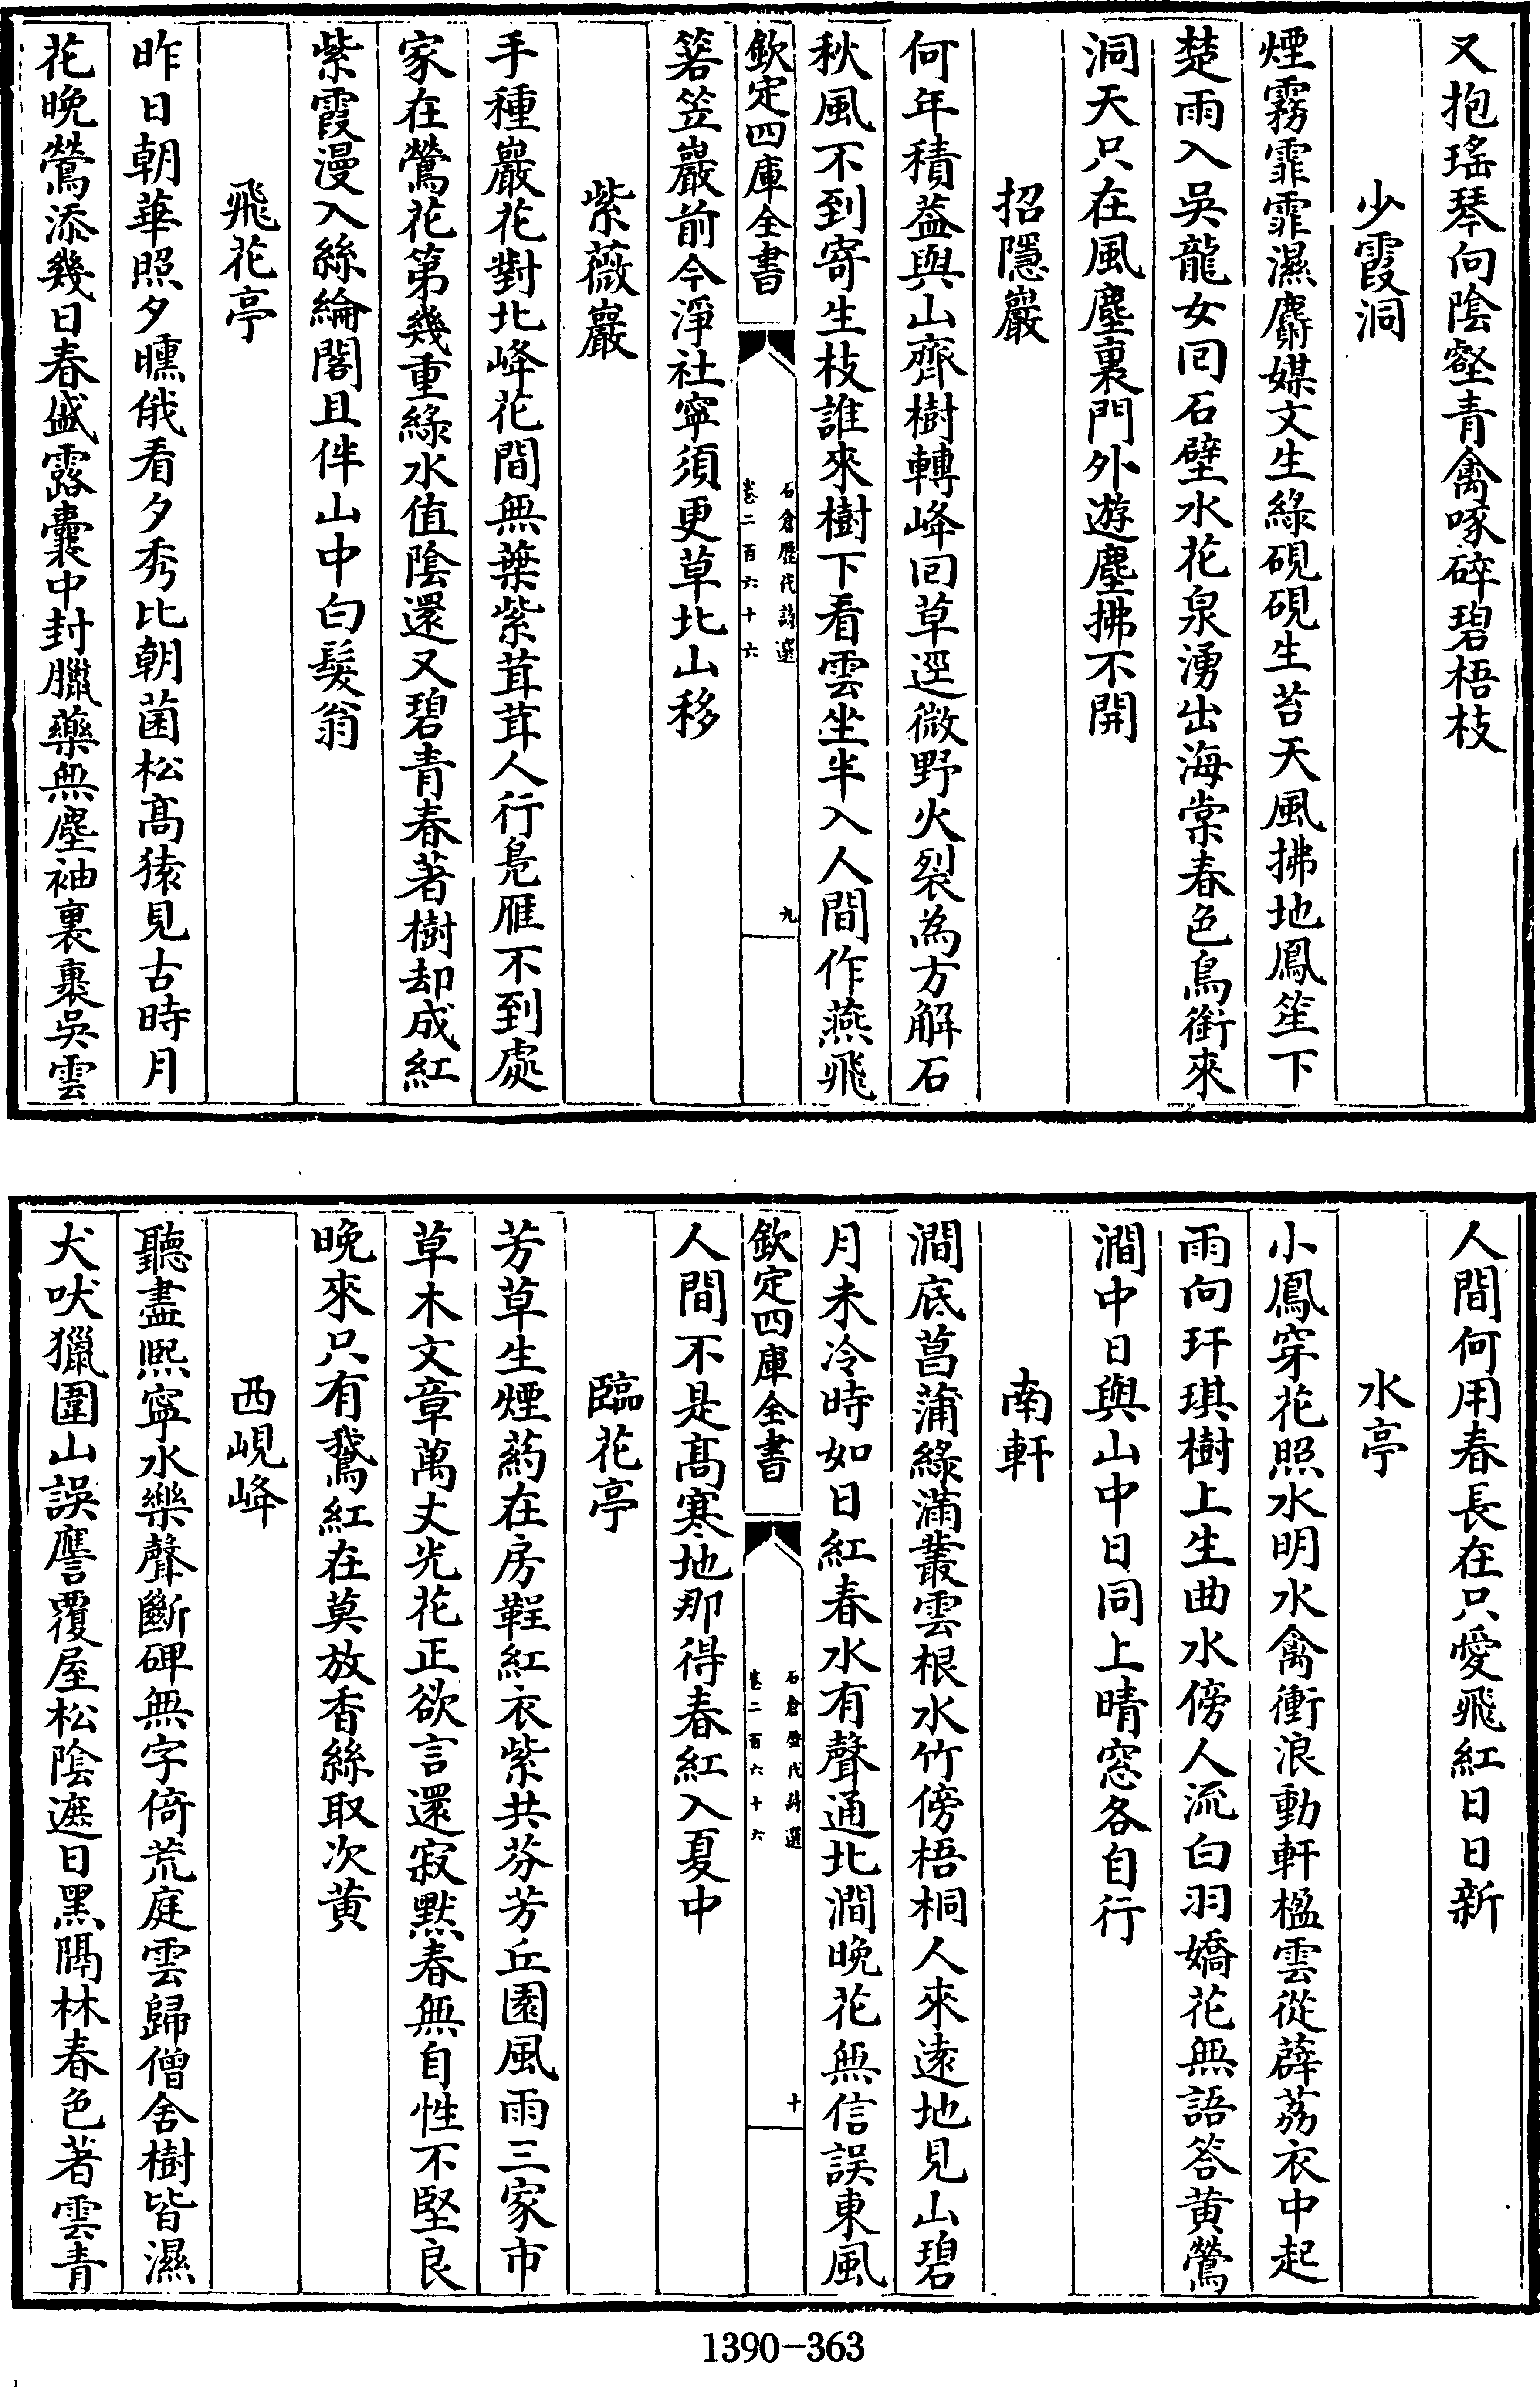 又抱瑤琴向陰壑青禽啄碎碧梧枝
少霞洞
煙霧霏霏濕麝媒文生綠硯硯生苔天風拂地鳳笙下
楚雨入吳龍女囘石壁水花泉湧出海棠春色鳥銜來
洞天只在風塵裏門外遊塵拂不開
招隱巖
何年積葢與山齊樹轉峰囘草逕微野火裂為方解石
秋風不到寄生枝誰來樹下看雲坐半入人間作燕飛
欽定四庫全書
石倉歷代詩選
卷二百六十六
九
箬笠巖前今淨社寧須更草北山移
紫薇巖
手種巖花對北峰花間無葉紫茸茸人行鳧雁不到處
家在鶯花第幾重綠水值陰還又碧青春著樹却成紅
紫霞漫入絲綸閣且伴山中白髮翁
飛花亭
昨日朝華照夕曛俄看夕秀比朝菌松髙猿見古時月
花晚鶯添幾日春盛露囊中封臘藥無塵袖裏裹吳雲
人間何用春長在只愛飛紅日日新
水亭
小鳳穿花照水明水禽衝浪動軒楹雲從薜荔衣中起
雨向玕琪樹上生曲水傍人流白羽嬌花無語答黄鶯
澗中日與山中日同上晴窓各自行
南軒
澗底菖蒲綠滿叢雲根水竹傍梧桐人來遠地見山碧
月未冷時如日紅春水有聲通北澗晚花無信誤東風
欽定四庫全書
石倉歷代詩選
卷二百六十六
十
人間不是髙寒地那得春紅入夏中
臨花亭
芳草生煙葯在房鞓紅衣紫共芬芳丘園風雨三家市
草木文章萬丈光花正欲言還寂默春無自性不堅良
晚來只有鵞紅在莫放香絲取次黄
西峴峰
聽盡熙寧水樂聲斷碑無字倚荒庭雲歸僧舍樹皆濕
犬吠獵圍山誤譍覆屋松陰遮日黑隔林春色著雲青
1390-363